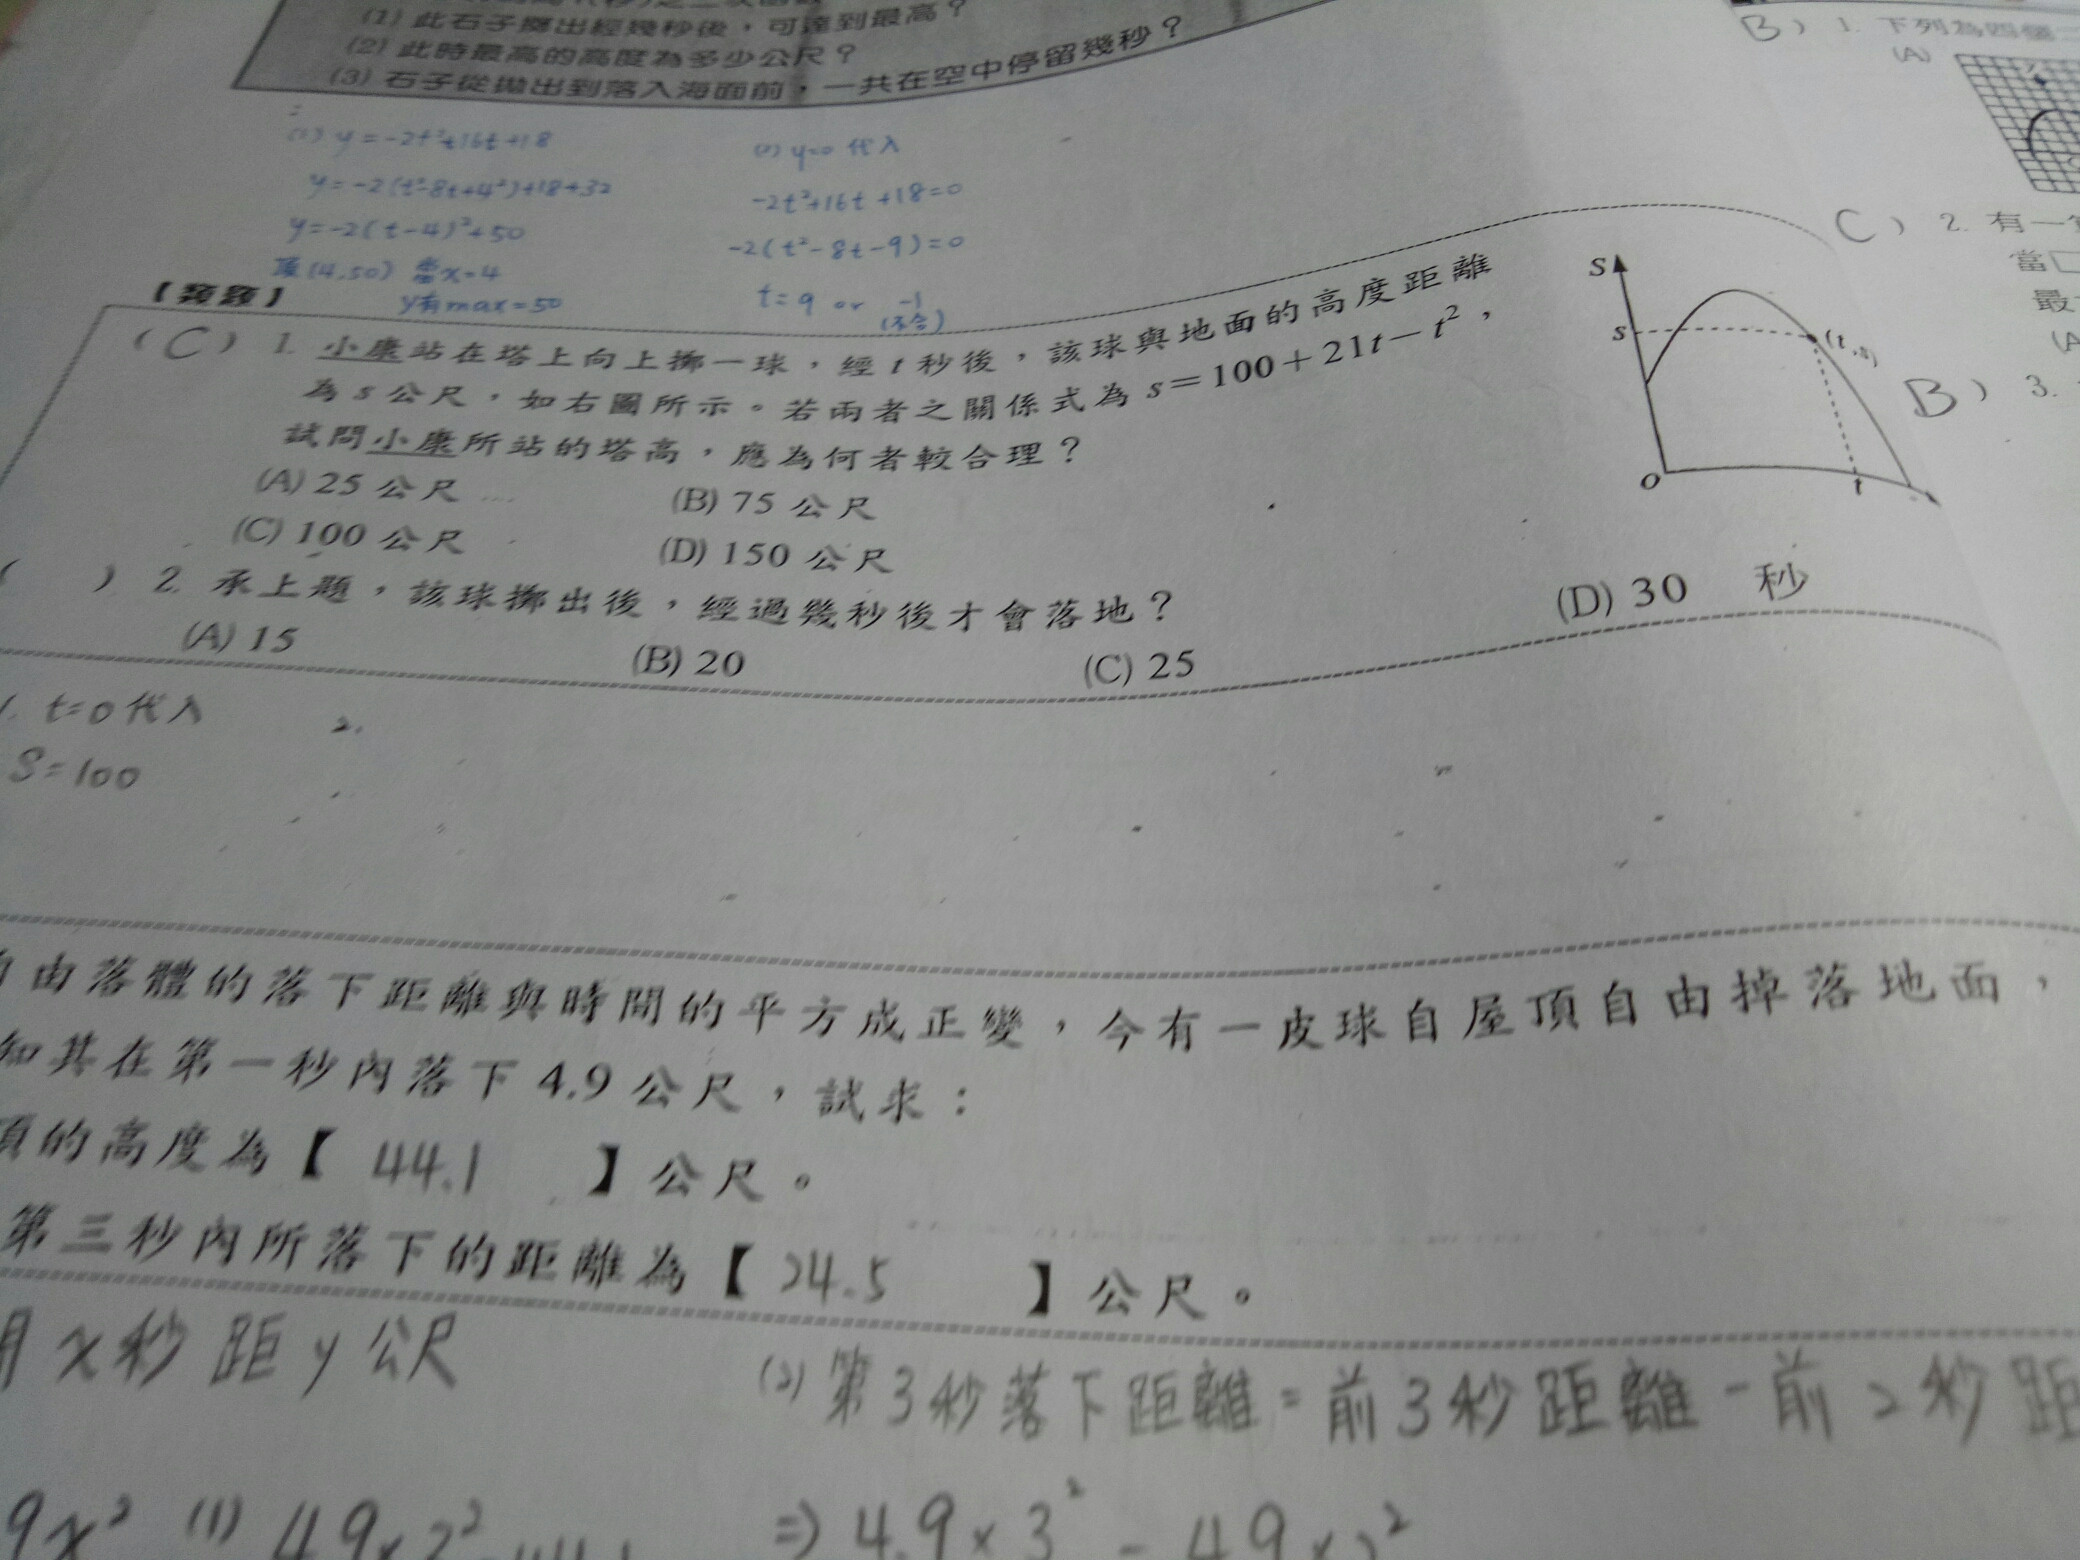 (1) 此石子擲出經幾秒後，可達到最高？
(2) 此時最高的高度為多少公尺？
(3) 石子從拋出到落入海面前，一共在空中停留幾秒？
(1) y=-2t²+16t+18
y=-2(t²-8t+4²)+18+32
y=-2(t-4)²+50
頂(4,50) 當x=4
y有max=50
y=0 代入
-2t²+16t+18=0
-2(t²-8t-9)=0
t=9 or -1
(不合)
【類題】
(C) 1. 小康站在塔上向上擲一球，經 t 秒後，該球與地面的高度距離
為 s 公尺，如右圖所示。若兩者之關係式為 s=100+21t-t²，
試問小康所站的塔高，應為何者較合理？
(A) 25 公尺
(B) 75 公尺
(C) 100 公尺
(D) 150 公尺
S
s
(t,s)
O
t
( ) 2. 承上題，該球擲出後，經過幾秒後才會落地？
(A) 15
(B) 20
(C) 25
(D) 30 秒
1. t=0代入
S=100
2.
自由落體的落下距離與時間的平方成正變，今有一皮球自屋頂自由掉落地面，
知其在第一秒內落下 4.9 公尺，試求：
頂的高度為【 44.1 】公尺。
第三秒內所落下的距離為【 24.5 】公尺。
x秒 距 y 公尺
(2) 第3秒落下距離=前3秒距離-前2秒距
9x² (1)
⇒ 4.9×3² - 4.9×2²
B) 1. 下列為四個二
(A)
C) 2. 有一
當
最
(A
B) 3.